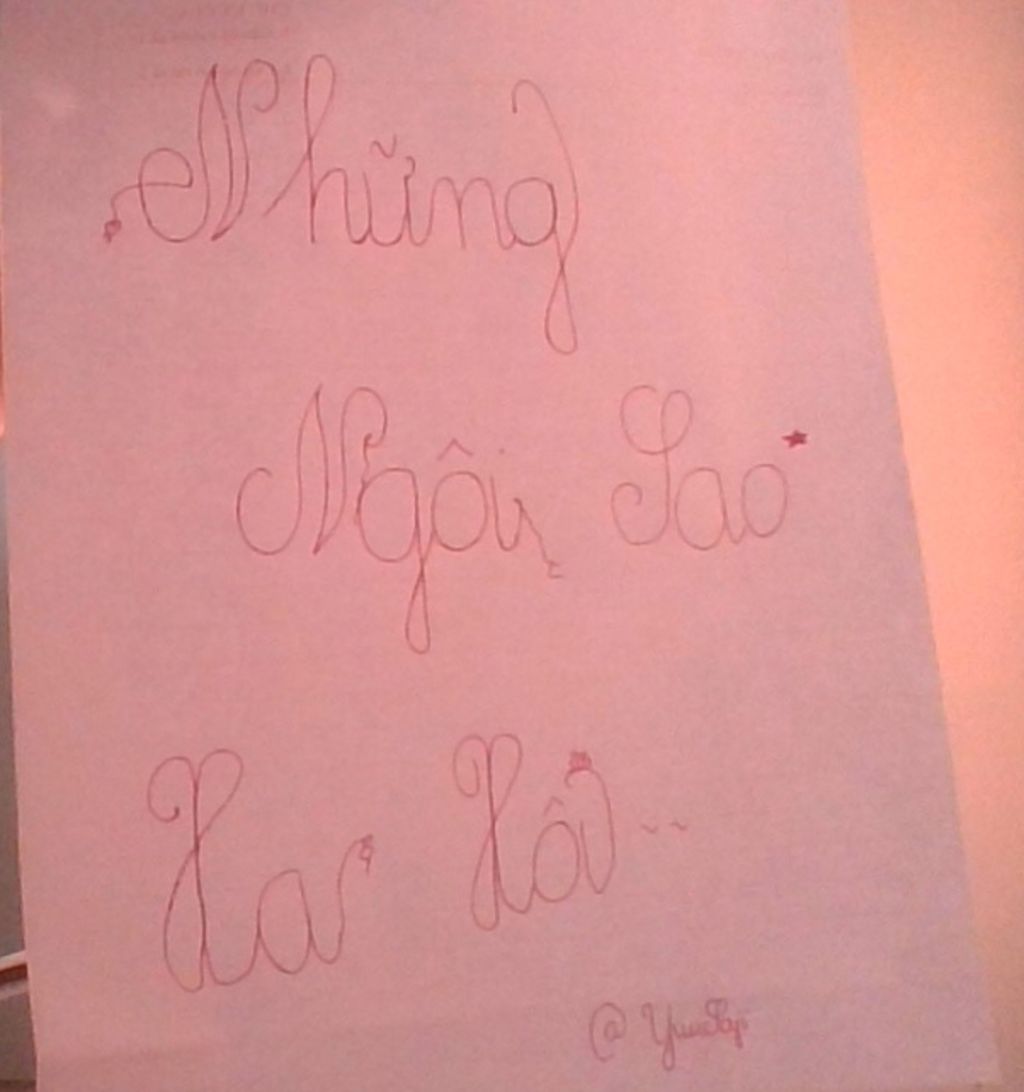 Những
Ngôi Sao
Xa Xôi